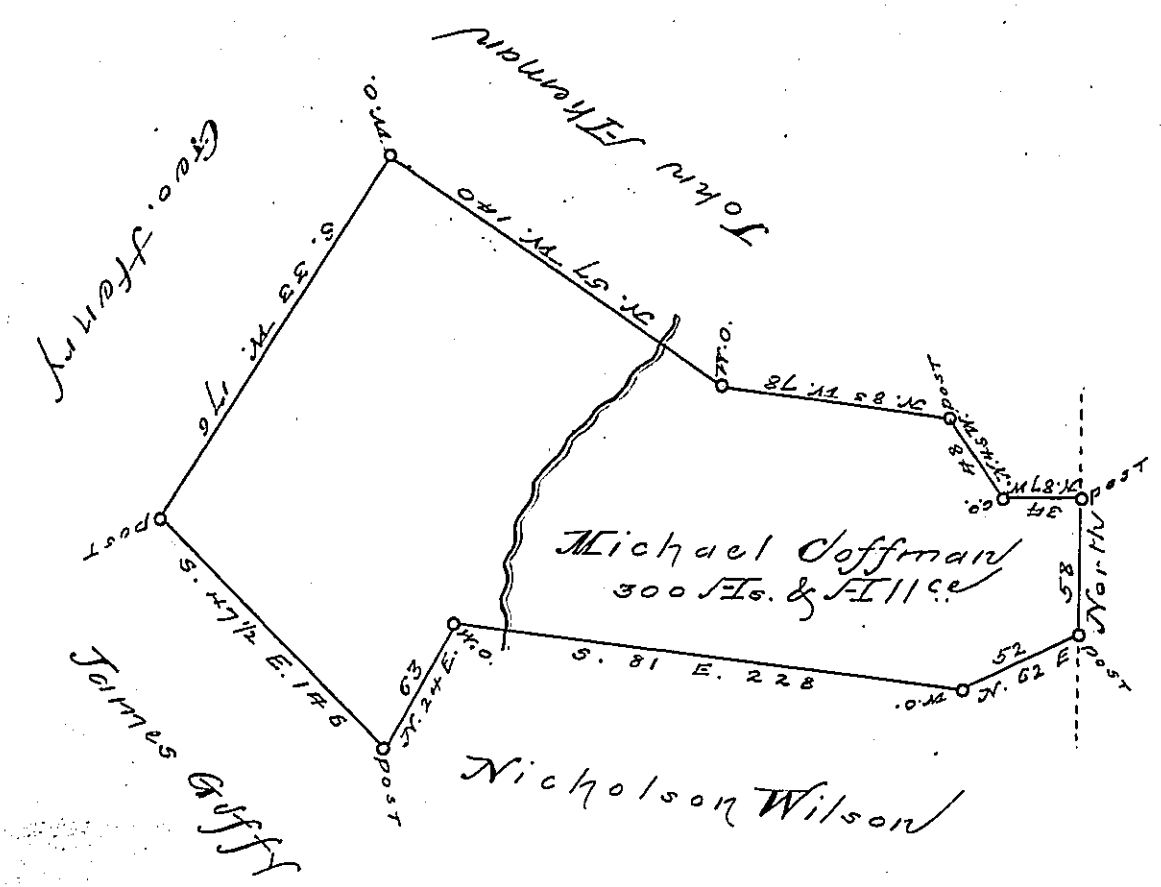 John Akeman
Geo. Jfourry
W.O.
N. 57 W. 140
S. 33 W. 176
W.O.
N. 85 W. 78
post
N. 45 W.
48
C.O.
N. 87 W.
34
post
North
58
post
Michael Coffman
300 As. & All ce
52
N. 62 E
W.O.
S. 81 E. 228
W.O.
63
N. 24 E.
post
S. 47 1/2 E. 146
post
James Guffy
Nicholson Wilson